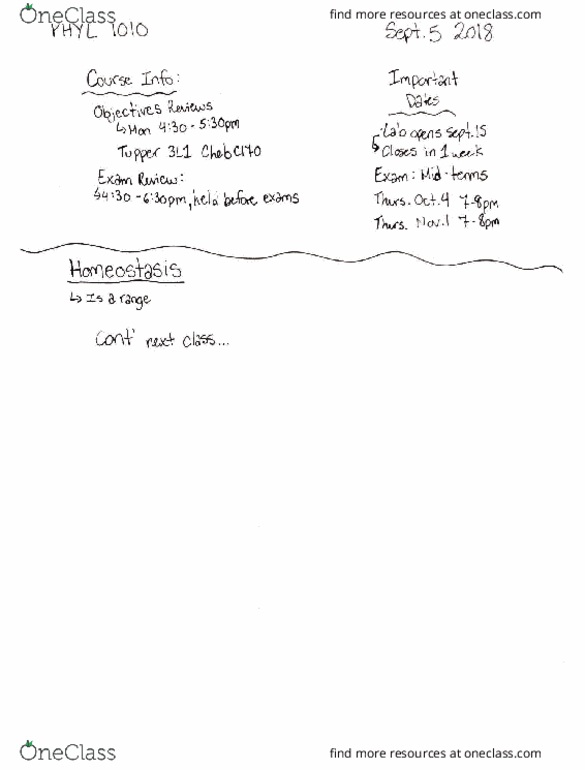 OneClass
find more resources at oneclass.com
PHYL 1010
Sept. 5 2018
Course Info:
Objectives Reviews
↳ Mon 4:30 - 5:30pm
Tupper 3L1 Cheb C170
Exam Review:
↳ 4:30 - 6:30pm, held before exams
Important
Dates
Lab opens Sept. 15
Closes in 1 week
Exam: Mid-terms
Thurs. Oct. 4 7-8pm
Thurs. Nov. 1 7-8pm
Homeostasis
↳ Is a range
Cont' next class...
OneClass
find more resources at oneclass.com